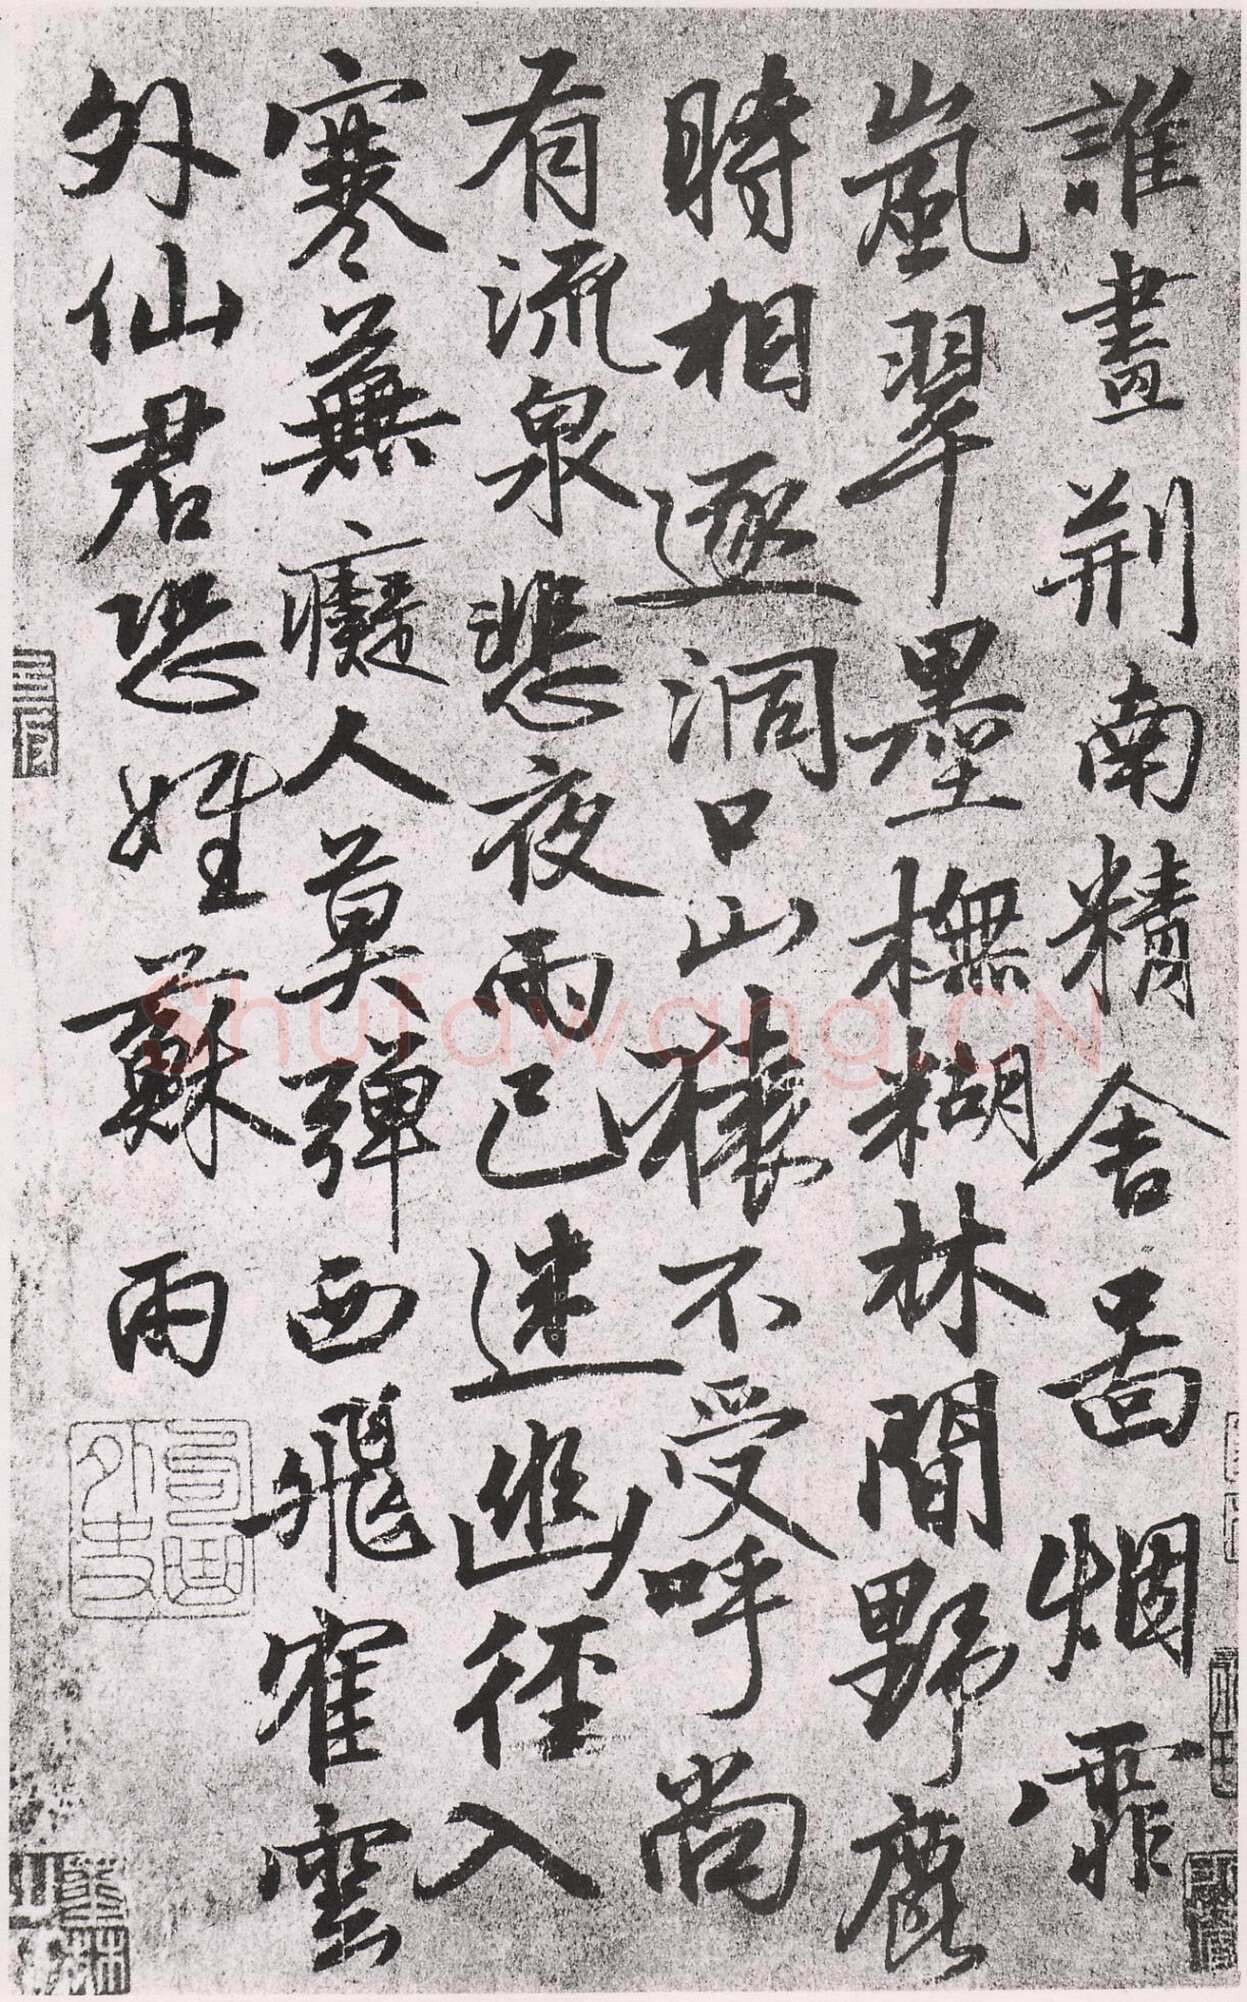 誰畫荊南精舍啚烟霏
嵐翠墨橅糊林間野鹿
時相逐洞口山猿不受呼尚
有流泉悲夜雨已迷幽徑入
寒蕪癡人莫彈西飛隺雲
外仙君恐姓蘇 雨
Shufawang.CN